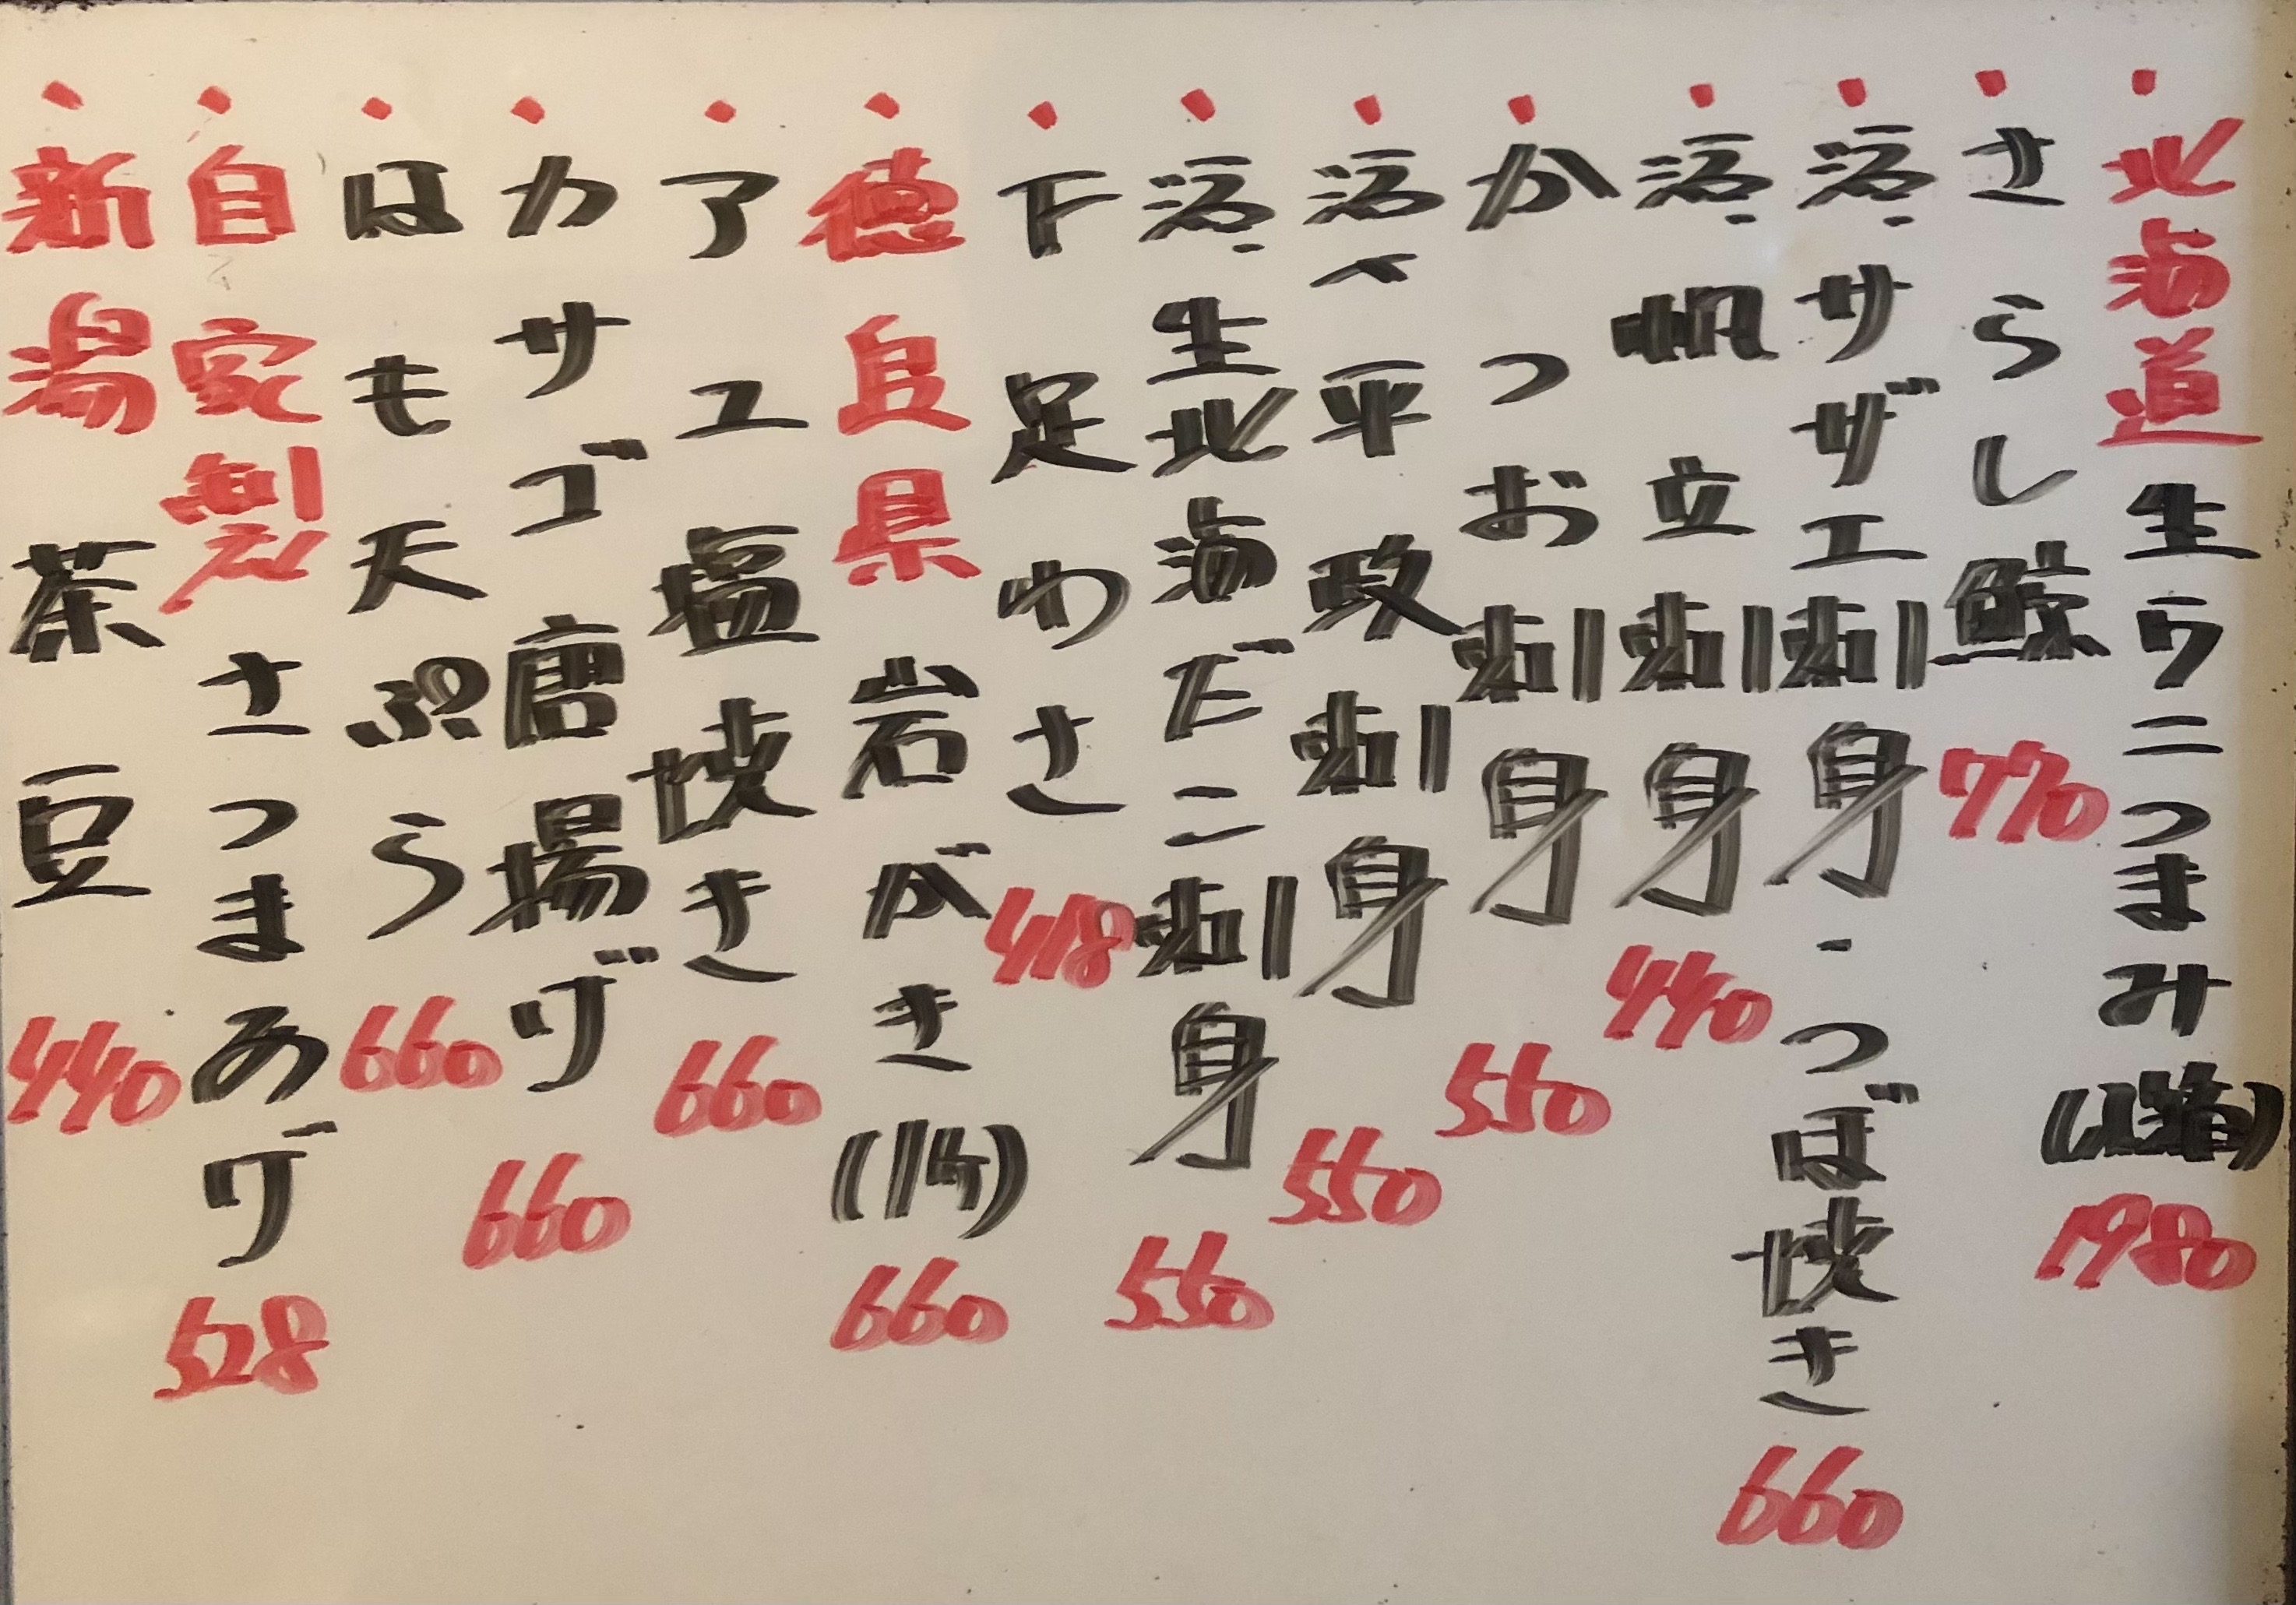 ・北海道生ウニつまみ 1980
・さらし鯨 770
・活、サザエ刺身・つぼ焼き 660
・活、帆立刺身 440
・かつお刺身 550
・活〆平政刺身 550
・活、生北海だこ刺身 550
・下足わさ 418
・徳島県岩がき(1ケ) 660
・アユ塩焼き 660
・カサゴ唐揚げ 660
・はも天ぷら 660
・自家製さつまあげ 528
・新潟茶豆 440